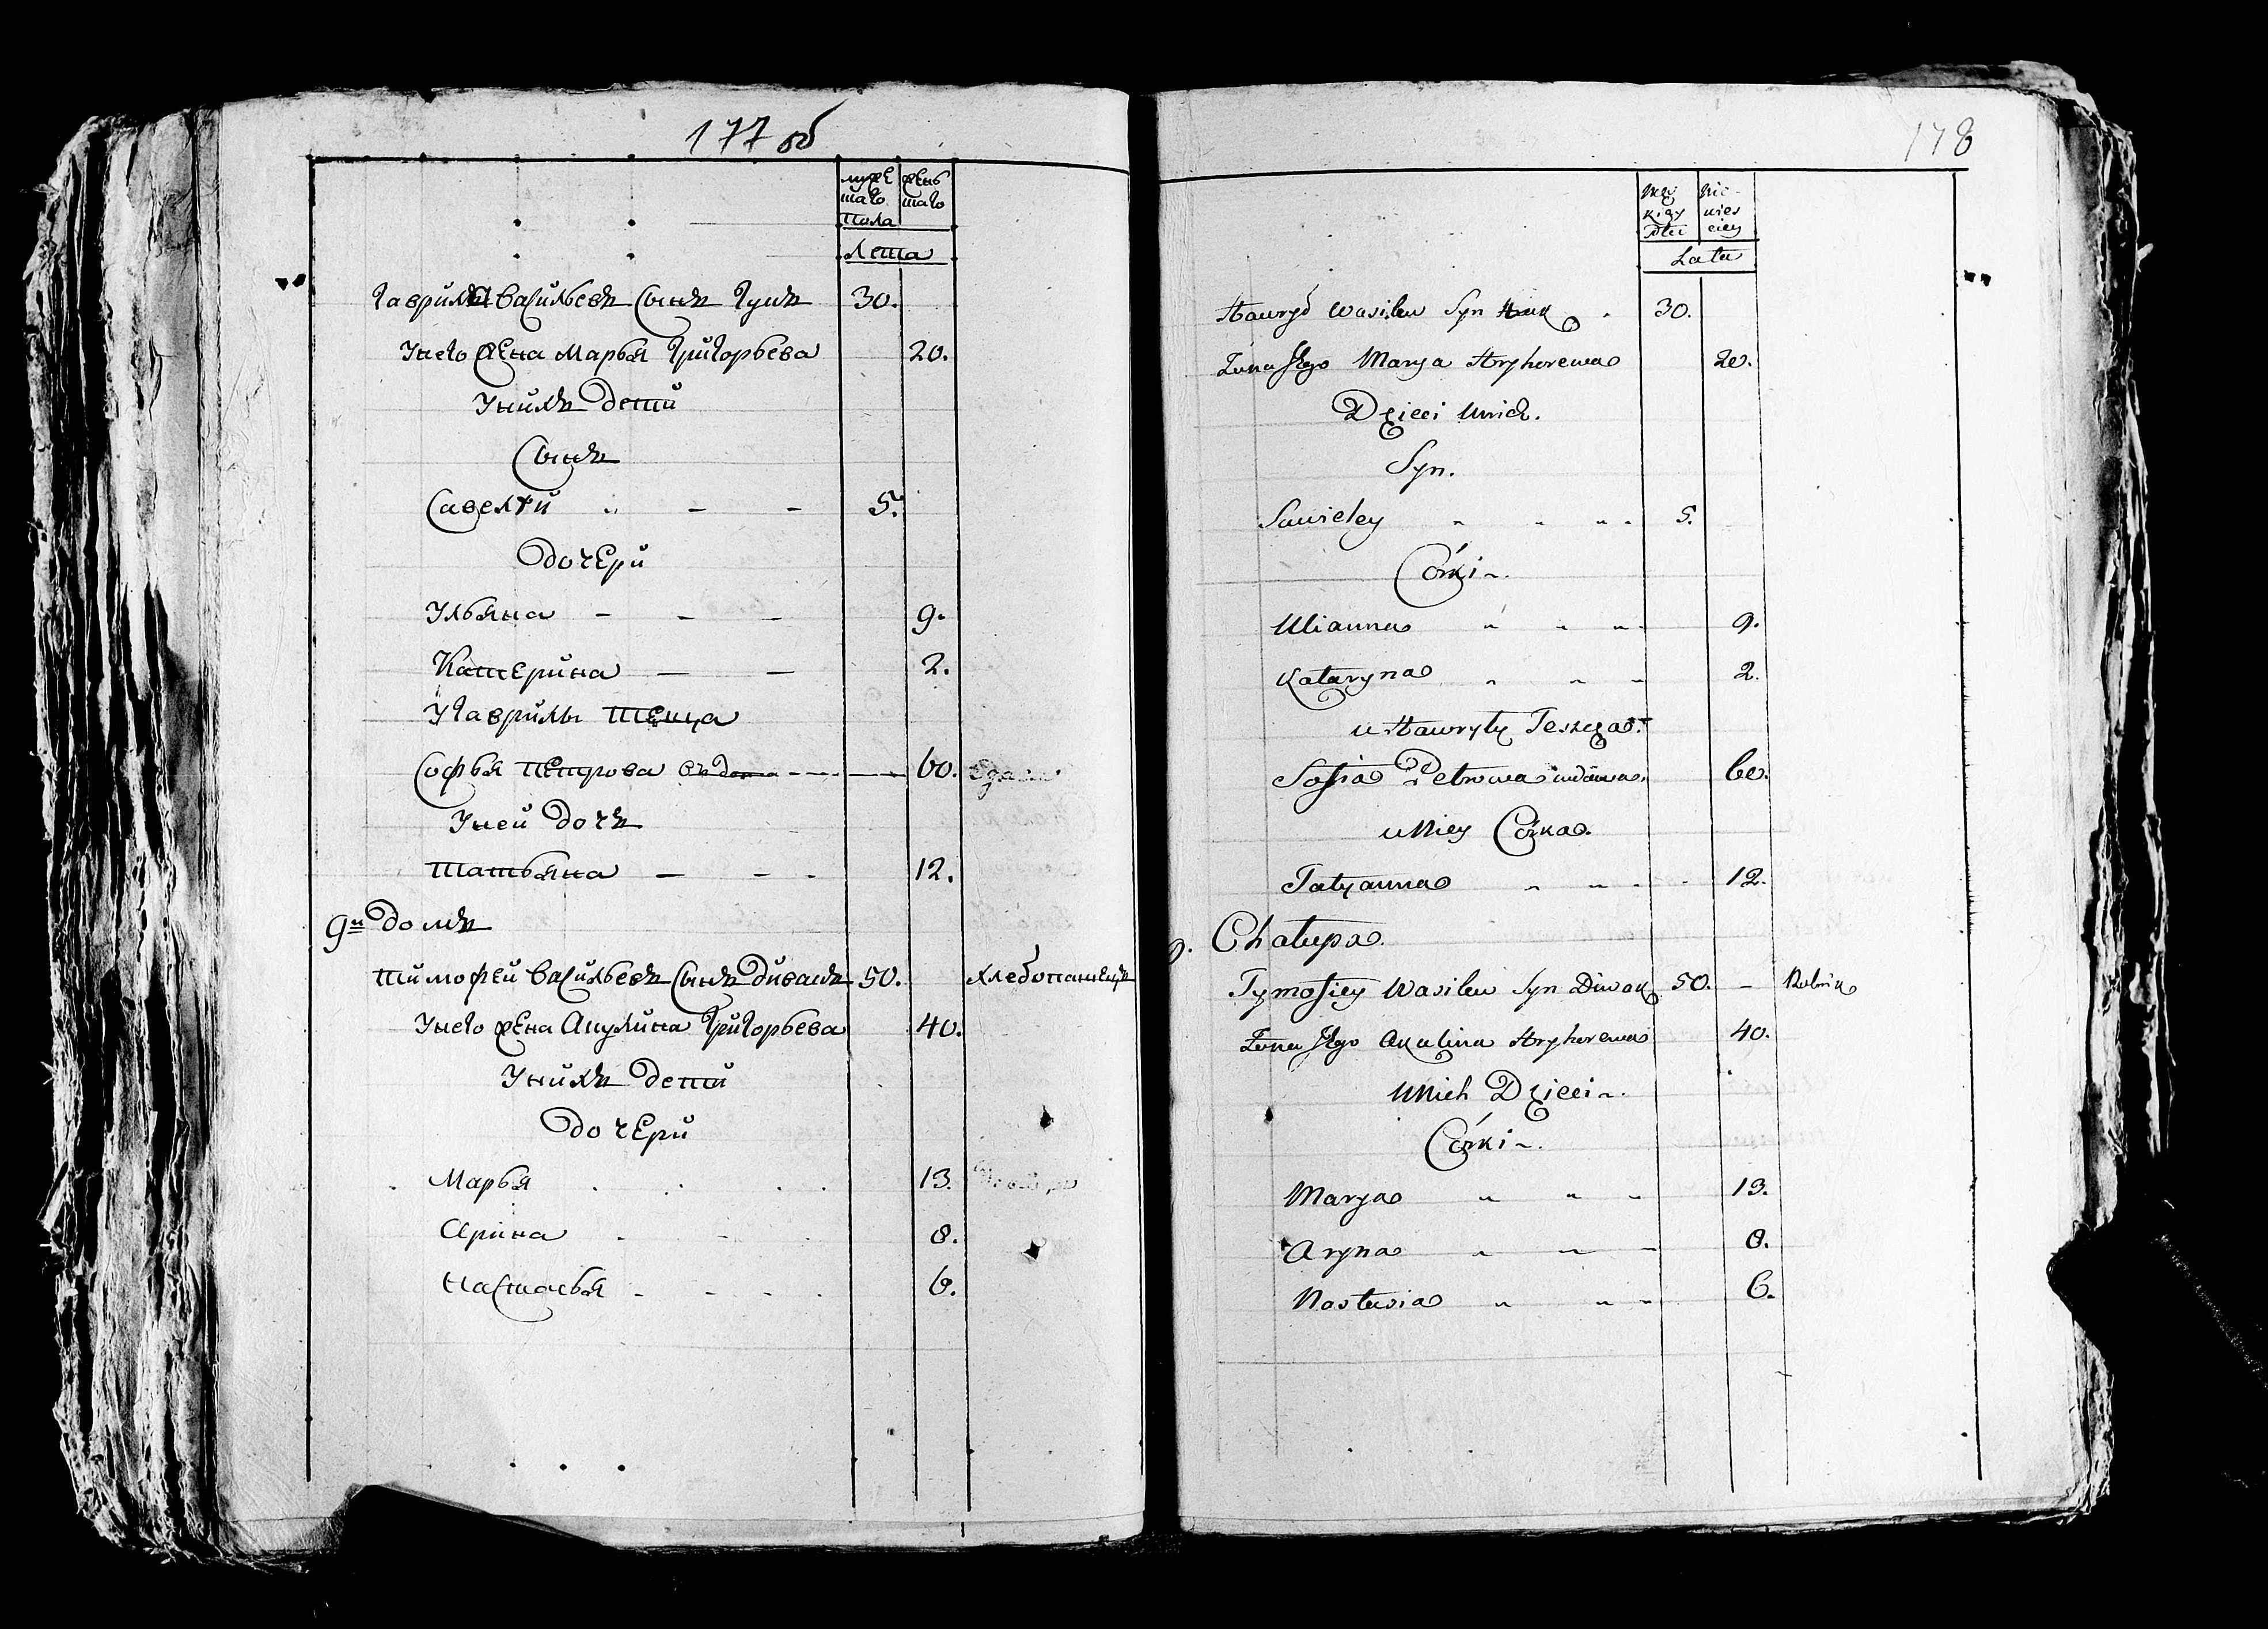 177 об
муже
женс
таго
таго
пола
Лета
Гаврила Васильевъ Сынъ Гукъ 30.
Унего жена Марья Григорьева 20.
Унихъ дети
Сынъ
Савелѣй 5.
дочери
Ульяна 9.
Катерина 2.
УГаврилы теща
Софья Петрова вдова 60.
Уней дочъ
Татьяна 12.
9й домъ
Тимофей Васильевъ Сынъ Дивакъ 50.
Унего жена Акулина Григорьева 40.
Унихъ дети
дочери
Марья 13.
Арина 8.
Настасья 6.
178
Męz
kiey
Płci
Nie
wies
ciey
Lata
Hawryło Wasilew Syn Huk 30.
Żona Jego Marya Hryhorewa 20.
Dzieci Unich.
Syn.
Sawieley 5.
Córki
Ulianna 9.
Kataryna 2.
u Hawryły Teszcza
Sofia Petrowa wdowa. 60.
u Niey Córka.
Tatyanna 12.
9. Chałupa.
Tymofiey Wasilew Syn Diwak 50. Rolnik
Żona Jego Akulina Hryhorewa 40.
UNich Dzieci
Córki
Marya 13.
Aryna 8.
Nastusia 6.